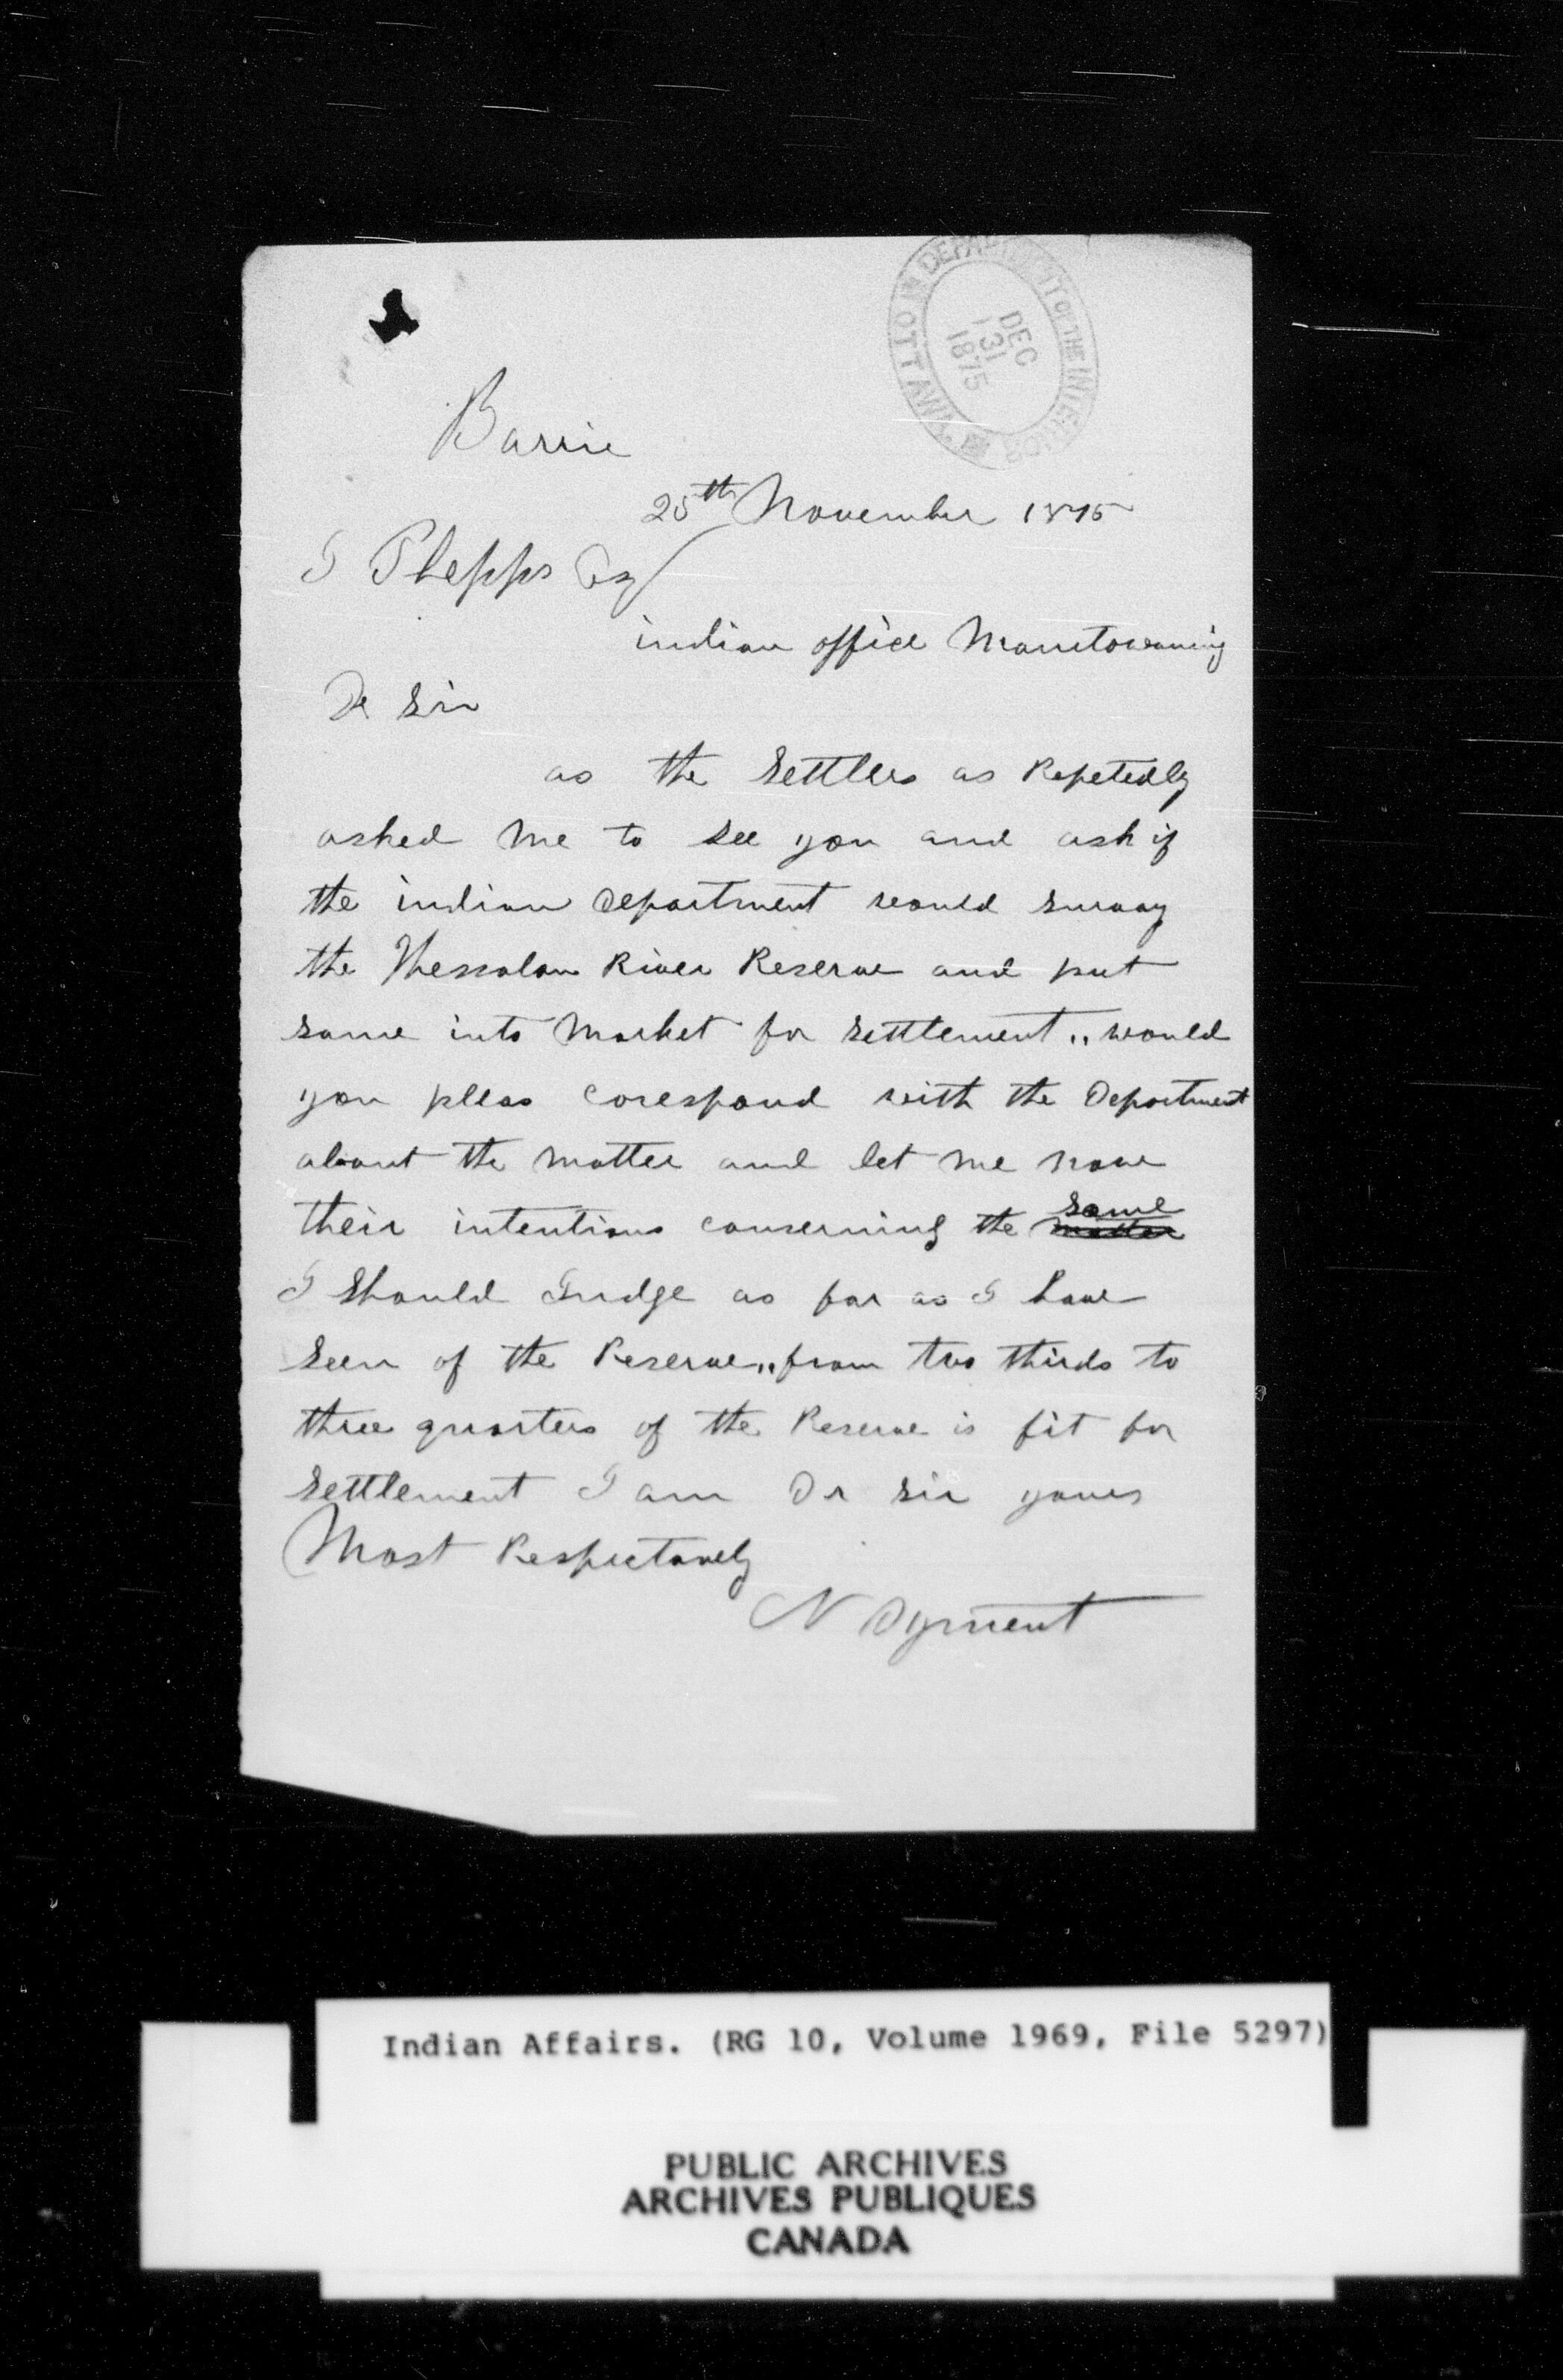 DEPARTMENT OF THE INTERIOR
DEC
31
1875
Barrie
25th November 1875
J Phepps Esq
indian office Manitowaning
Dr Sir
as the Settlers as Repetedly
asked me to see you and ask if
the indian Department would survay
the Thessalon River Reserve and put
same into Market for settlement,, would
you pleas corespond with the Department
about the matter and let me know
their intentions conserning the same matter
I should Judge as far as I have
seen of the Reserve,, from two thirds to
three quarters of the Reserve is fit for
settlement I am Dr sir yours
Most Respectively
N Dyment
Indian Affairs. (RG 10, Volume 1969, File 5297)
PUBLIC ARCHIVES
ARCHIVES PUBLIQUES
CANADA